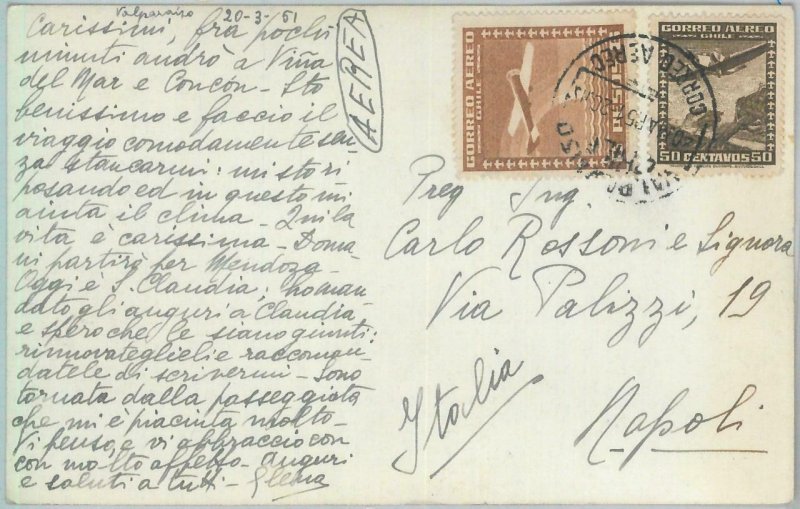 Valparaiso 20-3-51
Carissimi, fra pochi
minuti andrò a Viña
del Mar e Concón - Sto
benissimo e faccio il
viaggio comodamente sen-
za stancarmi: mi sto ri
posando ed in questo mi
aiuta il clima - Qui la
vita è carissima - Doma-
ni partirò per Mendoza -
Oggi è S. Claudia; ho man-
dato gli auguri a Claudia
e spero che le siano giunti:
rinnovateglieli e raccoman-
datele di scrivermi - Sono
tornata dalla passeggiata
che mi è piaciuta molto -
Vi penso e vi abbraccio con
con molto affetto - Auguri
e saluti a tutti - Elena
AEREA
CORREO AEREO
CHILE
CORREO AEREO
CHILE
50 CENTAVOS 50
CORREO AEREO
Preg Ing.
Carlo Rossoni e Signora
Via Palizzi, 19
Napoli
Italia